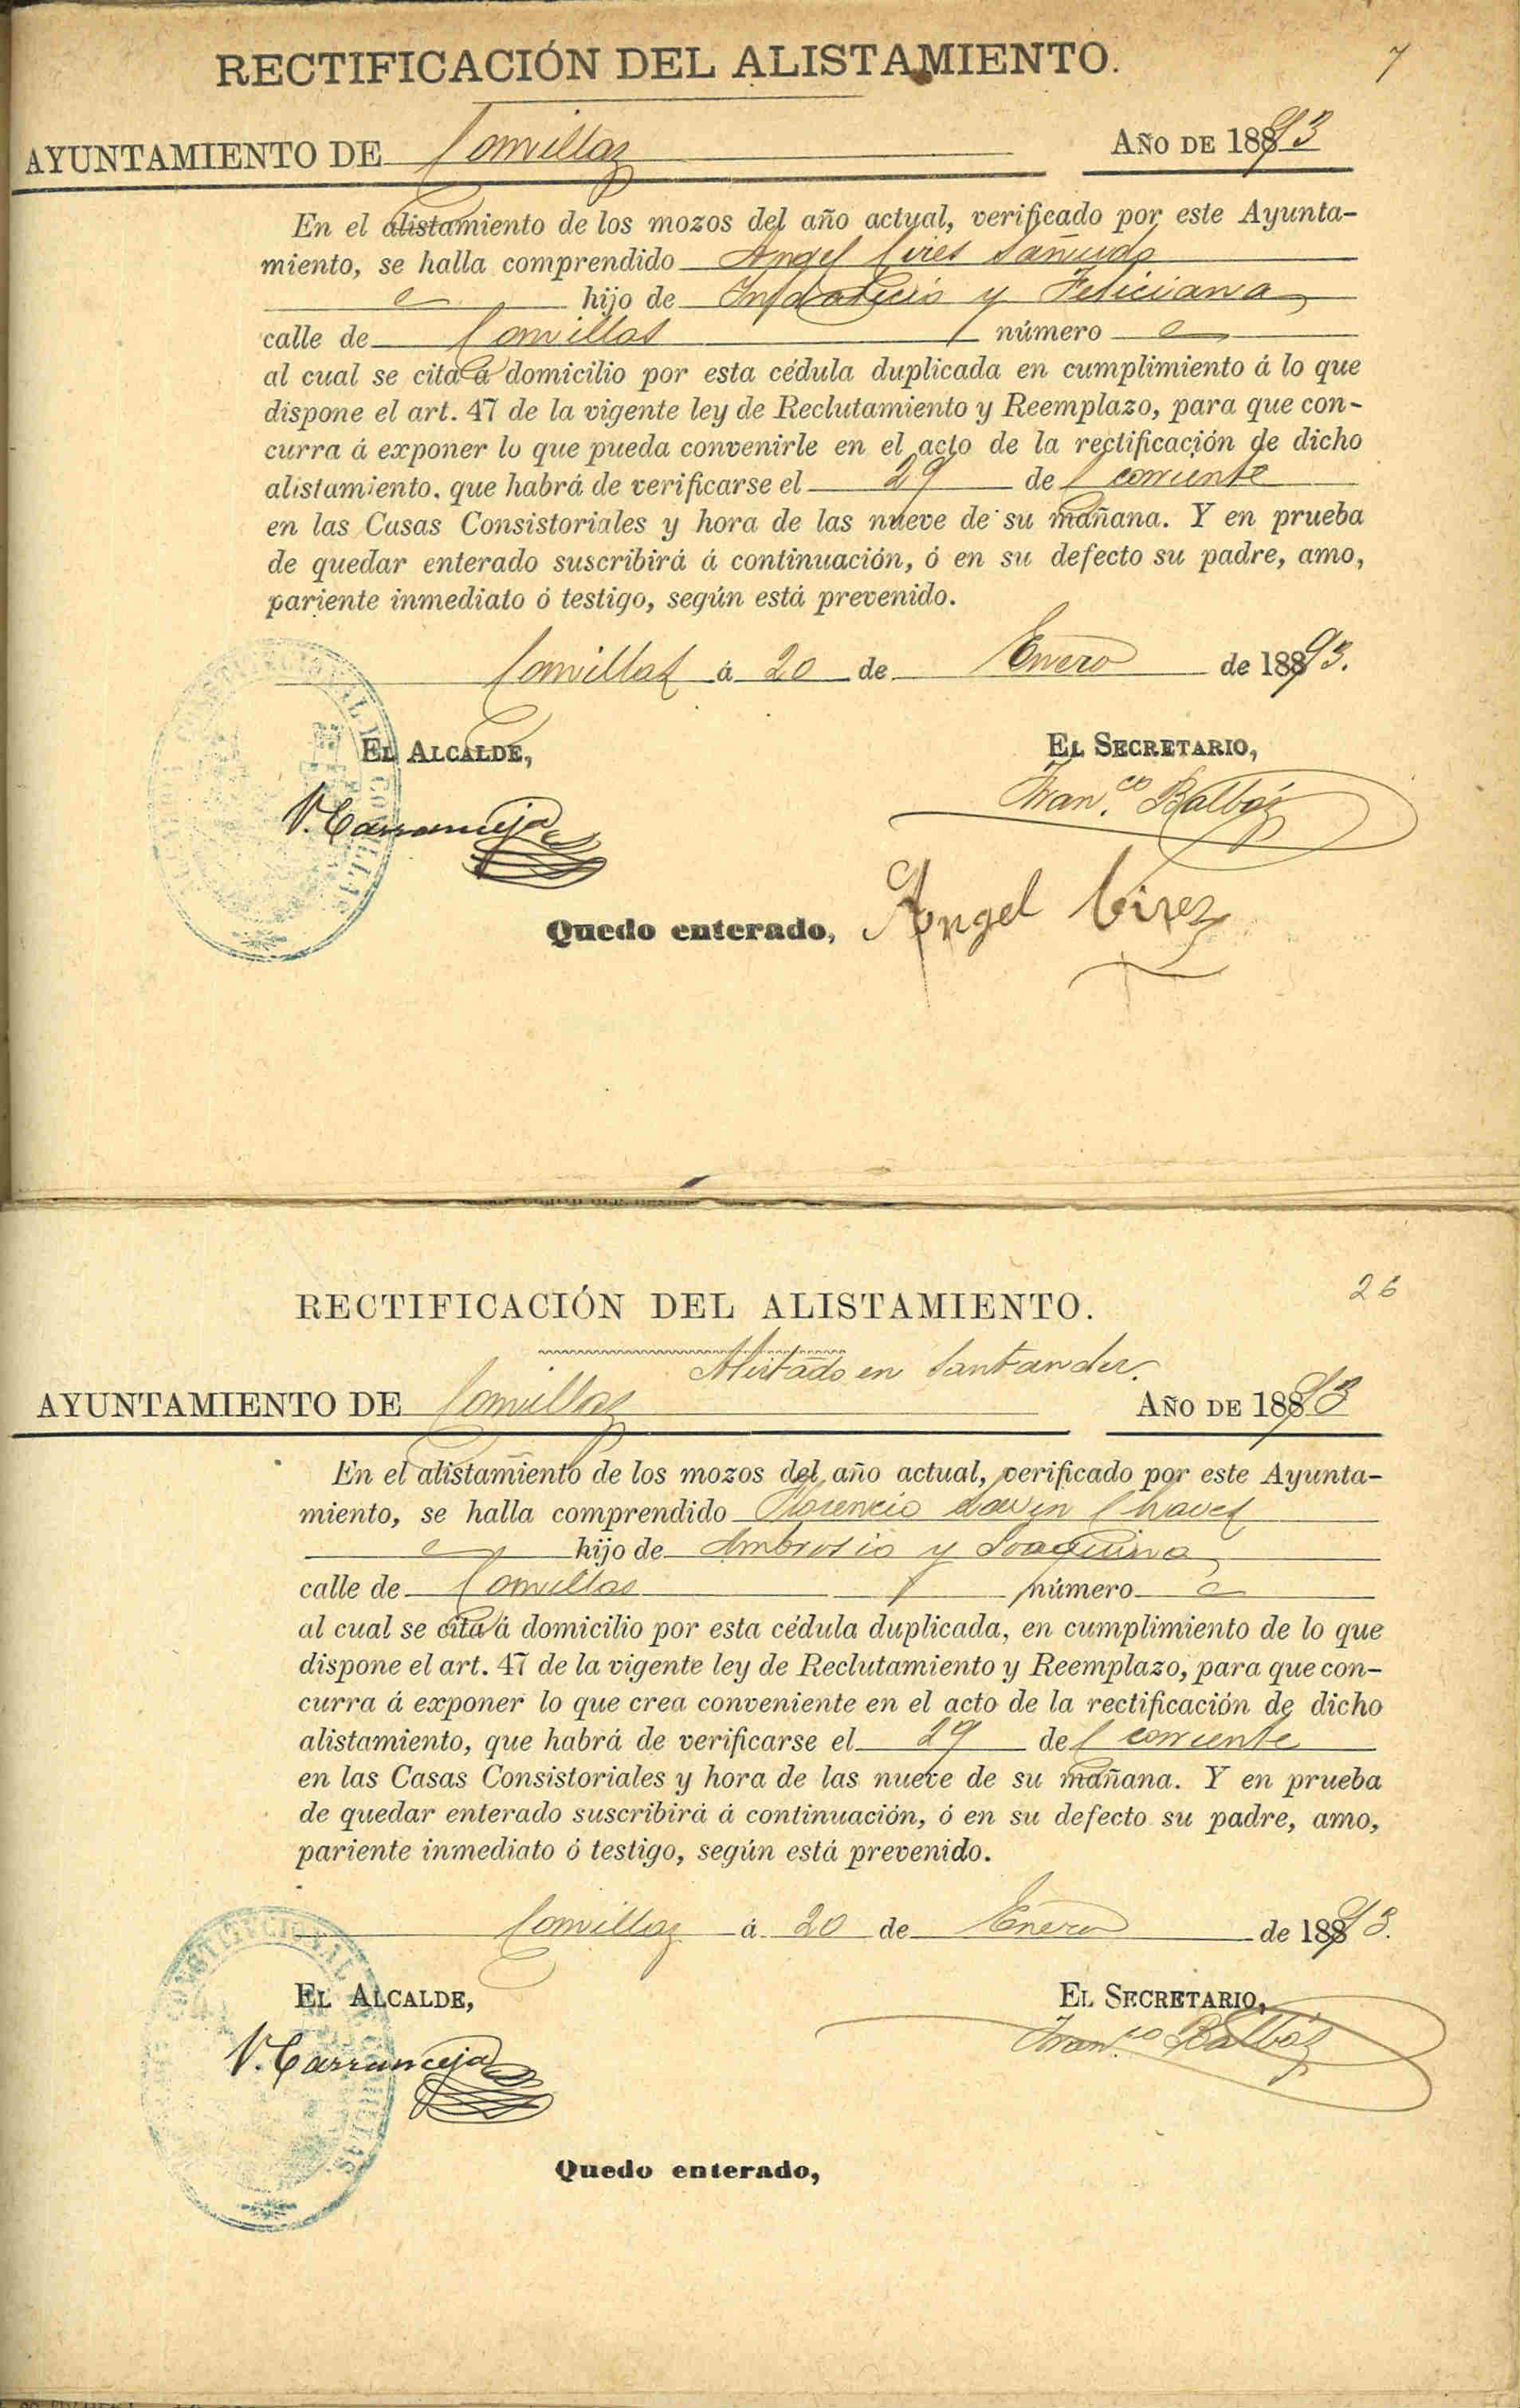 RECTIFICACIÓN DEL ALISTAMIENTO.
7
AYUNTAMIENTO DE Comillas AÑO DE 1893
En el alistamiento de los mozos del año actual, verificado por este Ayunta-
miento, se halla comprendido Angel Cires Sañudo
hijo de Indalecio y Feliciana
calle de Comillas número
al cual se cita á domicilio por esta cédula duplicada en cumplimiento á lo que
dispone el art. 47 de la vigente ley de Reclutamiento y Reemplazo, para que con-
curra á exponer lo que pueda convenirle en el acto de la rectificación de dicho
alistamiento, que habrá de verificarse el 29 del corriente
en las Casas Consistoriales y hora de las nueve de su mañana. Y en prueba
de quedar enterado suscribirá á continuación, ó en su defecto su padre, amo,
pariente inmediato ó testigo, según está prevenido.
Comillas á 20 de Enero de 1893.
EL ALCALDE, EL SECRETARIO,
V. Carranceja Fran.co Balbás
Quedo enterado, Angel Cirez
RECTIFICACIÓN DEL ALISTAMIENTO.
26
Alistado en Santander.
AYUNTAMIENTO DE Comillas AÑO DE 1893
En el alistamiento de los mozos del año actual, verificado por este Ayunta-
miento, se halla comprendido Florencio Lavin Chaves
hijo de Ambrosio y Joaquina
calle de Comillas número
al cual se cita á domicilio por esta cédula duplicada, en cumplimiento de lo que
dispone el art. 47 de la vigente ley de Reclutamiento y Reemplazo, para que con-
curra á exponer lo que crea conveniente en el acto de la rectificación de dicho
alistamiento, que habrá de verificarse el 29 del corriente
en las Casas Consistoriales y hora de las nueve de su mañana. Y en prueba
de quedar enterado suscribirá á continuación, ó en su defecto su padre, amo,
pariente inmediato ó testigo, según está prevenido.
Comillas á 20 de Enero de 1893.
EL ALCALDE, EL SECRETARIO,
V. Carranceja Fran.co Balbás
Quedo enterado,